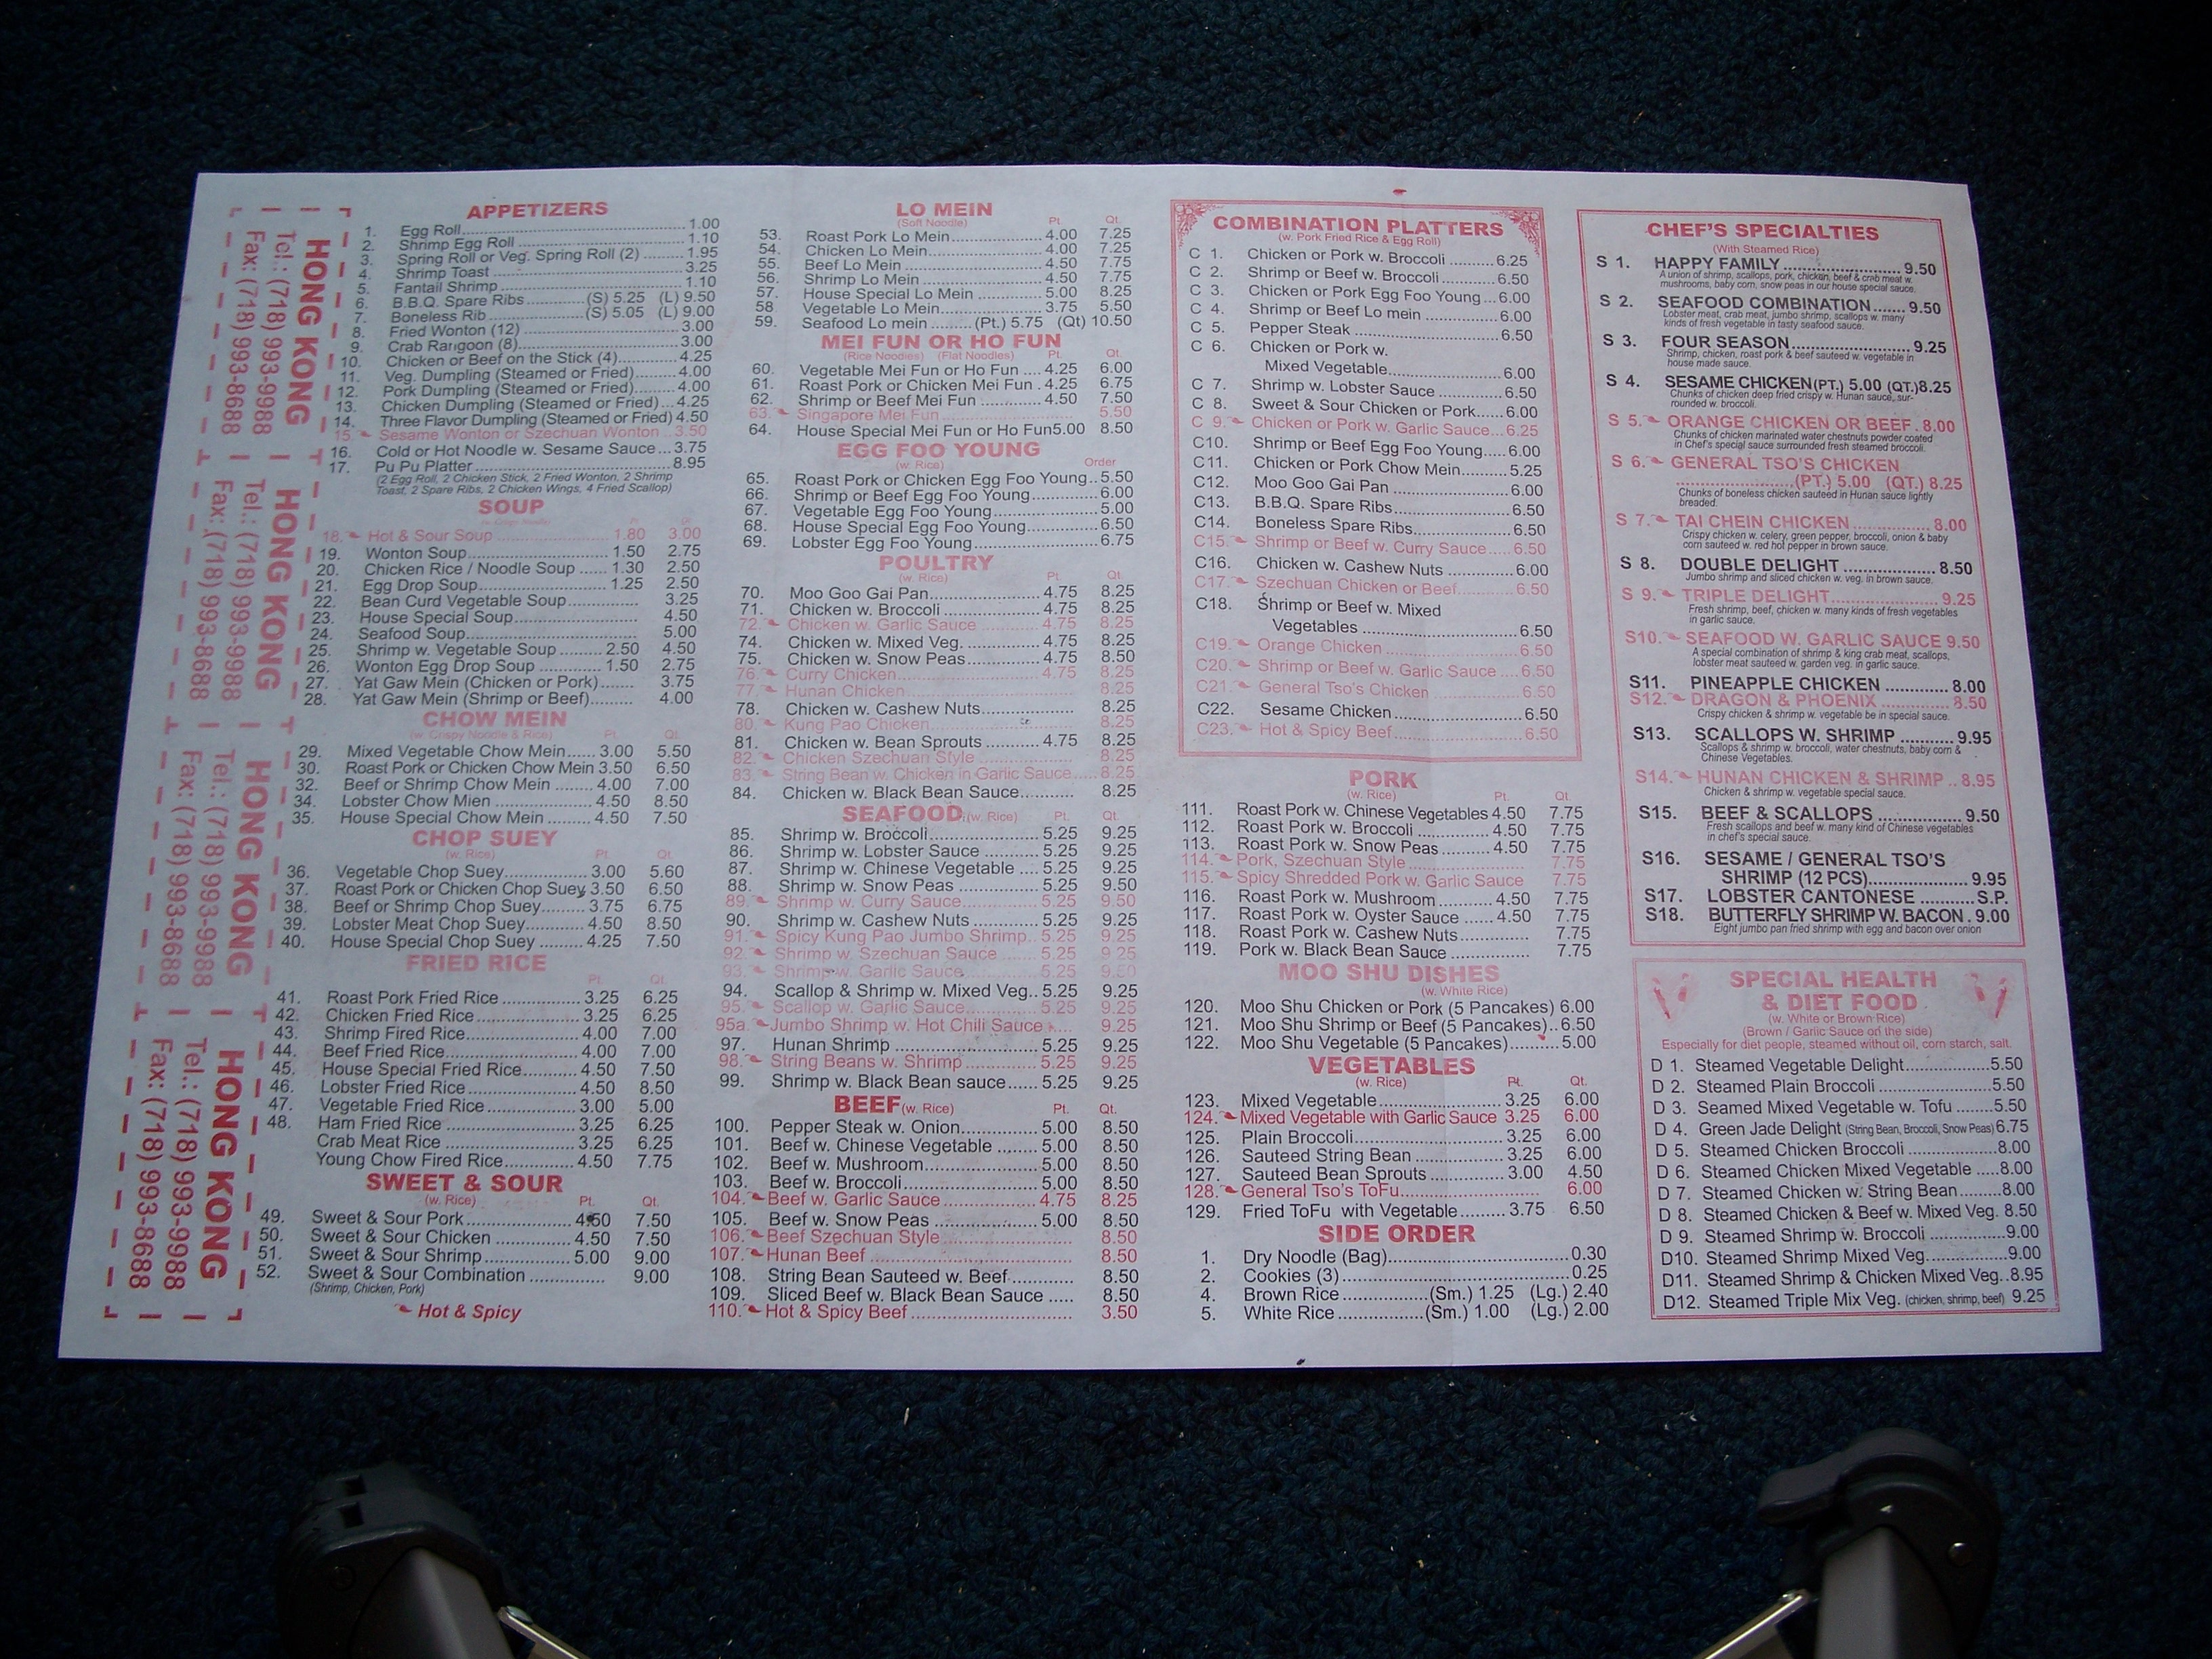 HONG KONG
Tel.: (718) 993-9988
Fax: (718) 993-8688
HONG KONG
Tel.: (718) 993-9988
Fax: (718) 993-8688
HONG KONG
Tel.: (718) 993-9988
Fax: (718) 993-8688
HONG KONG
Tel.: (718) 993-9988
Fax: (718) 993-8688
APPETIZERS
1. Egg Roll 1.00
2. Shrimp Egg Roll 1.10
3. Spring Roll or Veg. Spring Roll (2) 1.95
4. Shrimp Toast 3.25
5. Fantail Shrimp 1.10
6. B.B.Q. Spare Ribs (S) 5.25 (L) 9.50
7. Boneless Rib (S) 5.05 (L) 9.00
8. Fried Wonton (12) 3.00
9. Crab Rangoon (8) 3.00
10. Chicken or Beef on the Stick (4) 4.25
11. Veg. Dumpling (Steamed or Fried) 4.00
12. Pork Dumpling (Steamed or Fried) 4.00
13. Chicken Dumpling (Steamed or Fried) 4.25
14. Three Flavor Dumpling (Steamed or Fried) 4.50
15. Sesame Wonton or Szechuan Wonton 3.50
16. Cold or Hot Noodle w. Sesame Sauce 3.75
17. Pu Pu Platter 8.95
(2 Egg Roll, 2 Chicken Stick, 2 Fried Wonton, 2 Shrimp
Toast, 2 Spare Ribs, 2 Chicken Wings, 4 Fried Scallop)
SOUP
(w. Crispy Noodle)
Pt. Qt.
18. Hot & Sour Soup 1.80 3.00
19. Wonton Soup 1.50 2.75
20. Chicken Rice / Noodle Soup 1.30 2.50
21. Egg Drop Soup 1.25 2.50
22. Bean Curd Vegetable Soup 3.25
23. House Special Soup 4.50
24. Seafood Soup 5.00
25. Shrimp w. Vegetable Soup 2.50 4.50
26. Wonton Egg Drop Soup 1.50 2.75
27. Yat Gaw Mein (Chicken or Pork) 3.75
28. Yat Gaw Mein (Shrimp or Beef) 4.00
CHOW MEIN
(w. Crispy Noodle & Rice) Pt. Qt.
29. Mixed Vegetable Chow Mein 3.00 5.50
30. Roast Pork or Chicken Chow Mein 3.50 6.50
32. Beef or Shrimp Chow Mein 4.00 7.00
34. Lobster Chow Mien 4.50 8.50
35. House Special Chow Mein 4.50 7.50
CHOP SUEY
(w. Rice) Pt. Qt.
36. Vegetable Chop Suey 3.00 5.60
37. Roast Pork or Chicken Chop Suey 3.50 6.50
38. Beef or Shrimp Chop Suey 3.75 6.75
39. Lobster Meat Chop Suey 4.50 8.50
40. House Special Chop Suey 4.25 7.50
FRIED RICE
Pt. Qt.
41. Roast Pork Fried Rice 3.25 6.25
42. Chicken Fried Rice 3.25 6.25
43. Shrimp Fired Rice 4.00 7.00
44. Beef Fried Rice 4.00 7.00
45. House Special Fried Rice 4.50 7.50
46. Lobster Fried Rice 4.50 8.50
47. Vegetable Fried Rice 3.00 5.00
48. Ham Fried Rice 3.25 6.25
Crab Meat Rice 3.25 6.25
Young Chow Fired Rice 4.50 7.75
SWEET & SOUR
(w. Rice) Pt. Qt.
49. Sweet & Sour Pork 4.50 7.50
50. Sweet & Sour Chicken 4.50 7.50
51. Sweet & Sour Shrimp 5.00 9.00
52. Sweet & Sour Combination 9.00
(Shrimp, Chicken, Pork)
Hot & Spicy
LO MEIN
(Soft Noodle) Pt. Qt.
53. Roast Pork Lo Mein 4.00 7.25
54. Chicken Lo Mein 4.00 7.25
55. Beef Lo Mein 4.50 7.75
56. Shrimp Lo Mein 4.50 7.75
57. House Special Lo Mein 5.00 8.25
58 Vegetable Lo Mein 3.75 5.50
59. Seafood Lo mein (Pt.) 5.75 (Qt) 10.50
MEI FUN OR HO FUN
(Rice Noodles) (Flat Noodles) Pt. Qt.
60. Vegetable Mei Fun or Ho Fun 4.25 6.00
61. Roast Pork or Chicken Mei Fun 4.25 6.75
62. Shrimp or Beef Mei Fun 4.50 7.50
63. Singapore Mei Fun 5.50
64. House Special Mei Fun or Ho Fun 5.00 8.50
EGG FOO YOUNG
(w. Rice) Order
65. Roast Pork or Chicken Egg Foo Young 5.50
66. Shrimp or Beef Egg Foo Young 6.00
67. Vegetable Egg Foo Young 5.00
68. House Special Egg Foo Young 6.50
69. Lobster Egg Foo Young 6.75
POULTRY
(w. Rice) Pt. Qt.
70. Moo Goo Gai Pan 4.75 8.25
71. Chicken w. Broccoli 4.75 8.25
72. Chicken w. Garlic Sauce 4.75 8.25
74. Chicken w. Mixed Veg. 4.75 8.25
75. Chicken w. Snow Peas 4.75 8.50
76. Curry Chicken 4.75 8.25
77. Hunan Chicken 8.25
78. Chicken w. Cashew Nuts 8.25
80. Kung Pao Chicken 8.25
81. Chicken w. Bean Sprouts 4.75 8.25
82. Chicken Szechuan Style 8.25
83. String Bean w. Chicken in Garlic Sauce 8.25
84. Chicken w. Black Bean Sauce 8.25
SEAFOOD (w. Rice) Pt. Qt.
85. Shrimp w. Broccoli 5.25 9.25
86. Shrimp w. Lobster Sauce 5.25 9.25
87. Shrimp w. Chinese Vegetable 5.25 9.25
88. Shrimp w. Snow Peas 5.25 9.50
89. Shrimp w. Curry Sauce 5.25 9.50
90. Shrimp w. Cashew Nuts 5.25 9.25
91. Spicy Kung Pao Jumbo Shrimp 5.25 9.25
92. Shrimp w. Szechuan Sauce 5.25 9.25
93. Shrimp w. Garlic Sauce 5.25 9.50
94. Scallop & Shrimp w. Mixed Veg. 5.25 9.25
95. Scallop w. Garlic Sauce 5.25 9.25
95a. Jumbo Shrimp w. Hot Chili Sauce 9.25
97. Hunan Shrimp 5.25 9.25
98. String Beans w. Shrimp 5.25 9.25
99. Shrimp w. Black Bean sauce 5.25 9.25
BEEF (w. Rice) Pt. Qt.
100. Pepper Steak w. Onion 5.00 8.50
101. Beef w. Chinese Vegetable 5.00 8.50
102. Beef w. Mushroom 5.00 8.50
103. Beef w. Broccoli 5.00 8.50
104. Beef w. Garlic Sauce 4.75 8.25
105. Beef w. Snow Peas 5.00 8.50
106. Beef Szechuan Style 8.50
107. Hunan Beef 8.50
108. String Bean Sauteed w. Beef 8.50
109. Sliced Beef w. Black Bean Sauce 8.50
110. Hot & Spicy Beef 3.50
COMBINATION PLATTERS
(w. Pork Fried Rice & Egg Roll)
C 1. Chicken or Pork w. Broccoli 6.25
C 2. Shrimp or Beef w. Broccoli 6.50
C 3. Chicken or Pork Egg Foo Young 6.00
C 4. Shrimp or Beef Lo mein 6.00
C 5. Pepper Steak 6.50
C 6. Chicken or Pork w.
Mixed Vegetable 6.00
C 7. Shrimp w. Lobster Sauce 6.50
C 8. Sweet & Sour Chicken or Pork 6.00
C 9. Chicken or Pork w. Garlic Sauce 6.25
C10. Shrimp or Beef Egg Foo Young 6.00
C11. Chicken or Pork Chow Mein 5.25
C12. Moo Goo Gai Pan 6.00
C13. B.B.Q. Spare Ribs 6.50
C14. Boneless Spare Ribs 6.50
C15. Shrimp or Beef w. Curry Sauce 6.50
C16. Chicken w. Cashew Nuts 6.00
C17. Szechuan Chicken or Beef 6.50
C18. Shrimp or Beef w. Mixed
Vegetables 6.50
C19. Orange Chicken 6.50
C20. Shrimp or Beef w. Garlic Sauce 6.50
C21. General Tso's Chicken 6.50
C22. Sesame Chicken 6.50
C23. Hot & Spicy Beef 6.50
PORK
(w. Rice) Pt. Qt.
111. Roast Pork w. Chinese Vegetables 4.50 7.75
112. Roast Pork w. Broccoli 4.50 7.75
113. Roast Pork w. Snow Peas 4.50 7.75
114. Pork, Szechuan Style 7.75
115. Spicy Shredded Pork w. Garlic Sauce 7.75
116. Roast Pork w. Mushroom 4.50 7.75
117. Roast Pork w. Oyster Sauce 4.50 7.75
118. Roast Pork w. Cashew Nuts 7.75
119. Pork w. Black Bean Sauce 7.75
MOO SHU DISHES
(w. White Rice)
120. Moo Shu Chicken or Pork (5 Pancakes) 6.00
121. Moo Shu Shrimp or Beef (5 Pancakes) 6.50
122. Moo Shu Vegetable (5 Pancakes) 5.00
VEGETABLES
(w. Rice) Pt. Qt.
123. Mixed Vegetable 3.25 6.00
124. Mixed Vegetable with Garlic Sauce 3.25 6.00
125. Plain Broccoli 3.25 6.00
126. Sauteed String Bean 3.25 6.00
127. Sauteed Bean Sprouts 3.00 4.50
128. General Tso's ToFu 6.00
129. Fried ToFu with Vegetable 3.75 6.50
SIDE ORDER
1. Dry Noodle (Bag) 0.30
2. Cookies (3) 0.25
4. Brown Rice (Sm.) 1.25 (Lg.) 2.40
5. White Rice (Sm.) 1.00 (Lg.) 2.00
CHEF'S SPECIALTIES
(With Steamed Rice)
S 1. HAPPY FAMILY 9.50
A union of shrimp, scallops, pork, chicken, beef & crab meat w.
mushrooms, baby corn, snow peas in our house special sauce.
S 2. SEAFOOD COMBINATION 9.50
Lobster meat, crab meat, jumbo shrimp, scallops w. many
kinds of fresh vegetable in tasty seafood sauce.
S 3. FOUR SEASON 9.25
Shrimp, chicken, roast pork & beef sauteed w. vegetable in
house made sauce.
S 4. SESAME CHICKEN (PT.) 5.00 (QT.) 8.25
Chunks of chicken deep fried crispy w. Hunan sauce, sur-
rounded w. broccoli.
S 5. ORANGE CHICKEN OR BEEF 8.00
Chunks of chicken marinated water chestnuts powder coated
in Chef's special sauce surrounded fresh steamed broccoli.
S 6. GENERAL TSO'S CHICKEN
(PT.) 5.00 (QT.) 8.25
Chunks of boneless chicken sauteed in Hunan sauce lightly
breaded.
S 7. TAI CHEIN CHICKEN 8.00
Crispy chicken w. celery, green pepper, broccoli, onion & baby
corn sauteed w. red hot pepper in brown sauce.
S 8. DOUBLE DELIGHT 8.50
Jumbo shrimp and sliced chicken w. veg. in brown sauce.
S 9. TRIPLE DELIGHT 9.25
Fresh shrimp, beef, chicken w. many kinds of fresh vegetables
in garlic sauce.
S10. SEAFOOD W. GARLIC SAUCE 9.50
A special combination of shrimp & king crab meat, scallops,
lobster meat sauteed w. garden veg. in garlic sauce.
S11. PINEAPPLE CHICKEN 8.00
S12. DRAGON & PHOENIX 8.50
Crispy chicken & shrimp w. vegetable be in special sauce.
S13. SCALLOPS W. SHRIMP 9.95
Scallops & shrimp w. broccoli, water chestnuts, baby corn &
Chinese Vegetables.
S14. HUNAN CHICKEN & SHRIMP 8.95
Chicken & shrimp w. vegetable special sauce.
S15. BEEF & SCALLOPS 9.50
Fresh scallops and beef w. many kind of Chinese vegetables
in chef's special sauce.
S16. SESAME / GENERAL TSO'S
SHRIMP (12 PCS) 9.95
S17. LOBSTER CANTONESE S.P.
S18. BUTTERFLY SHRIMP W. BACON 9.00
Eight jumbo pan fried shrimp with egg and bacon over onion
SPECIAL HEALTH
& DIET FOOD
(w. White or Brown Rice)
(Brown / Garlic Sauce on the side)
Especially for diet people, steamed without oil, corn starch, salt.
D 1. Steamed Vegetable Delight 5.50
D 2. Steamed Plain Broccoli 5.50
D 3. Seamed Mixed Vegetable w. Tofu 5.50
D 4. Green Jade Delight (String Bean, Broccoli, Snow Peas) 6.75
D 5. Steamed Chicken Broccoli 8.00
D 6. Steamed Chicken Mixed Vegetable 8.00
D 7. Steamed Chicken w. String Bean 8.00
D 8. Steamed Chicken & Beef w. Mixed Veg. 8.50
D 9. Steamed Shrimp w. Broccoli 9.00
D10. Steamed Shrimp Mixed Veg. 9.00
D11. Steamed Shrimp & Chicken Mixed Veg. 8.95
D12. Steamed Triple Mix Veg. (chicken, shrimp, beef) 9.25